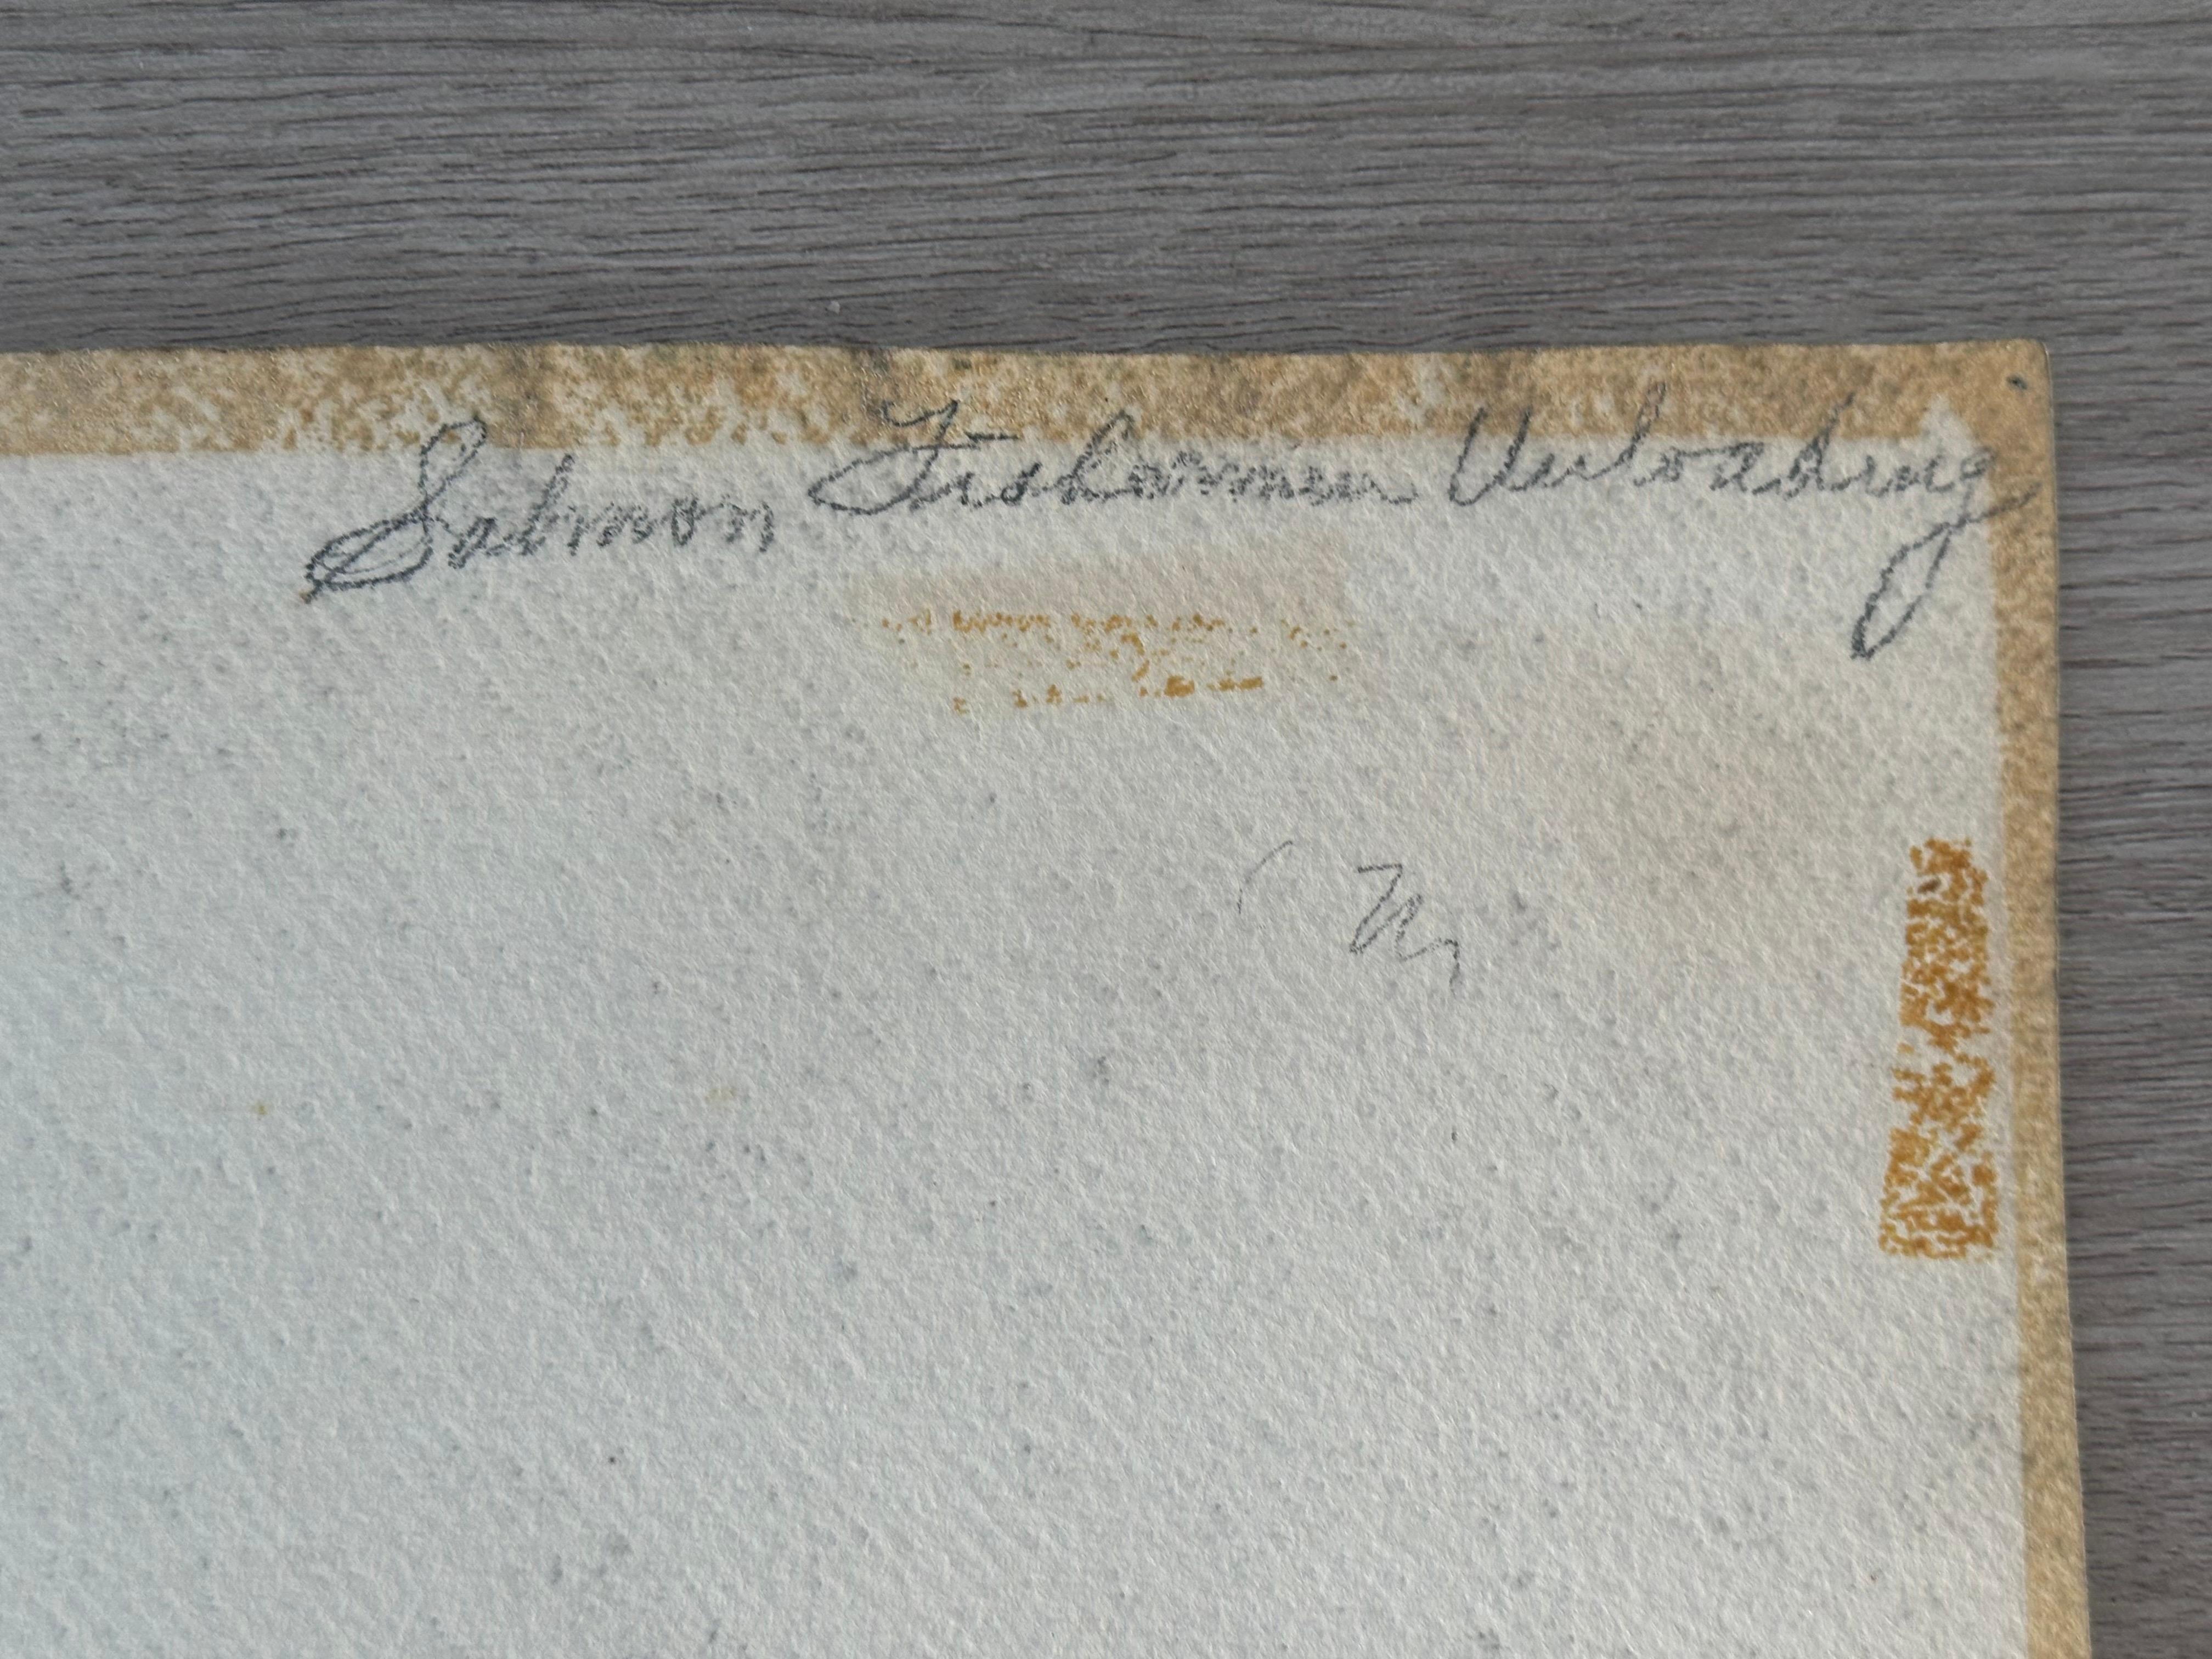 Salmon Fishermen Unloading